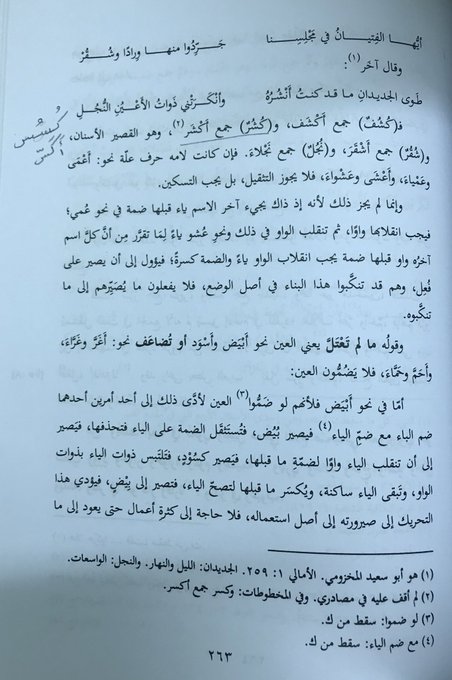 أيُّها الفِتيانُ في مَجْلِسِنا جَرِّدُوا منها وِرادًا وشُقُرْ
وقال آخَر(١):
طَوى الجديدانِ ما قد كنتُ أَنْشُرُهُ وأَنْكَرَتْني ذَواتُ الأعْيُنِ النُّجُلِ
فـ(كُشُفٌ) جمع أَكْشَف، و(كُشُرٌ) جمع أَكْشَر(٢)، وهو القصير الأسنان،
كُسُس
أكسّ
و(شُقُرٌ) جمع أَشْقَرَ، و(نُجُلٌ) جمع نَجْلاءَ. فإن كانت لامه حرف علّة نحو: أَعْمَى
وعَمْياءَ، وأَعْشَى وعَشْواءَ، فلا يجوز التثقيل، بل يجب التسكين.
وإنما لم يجز ذلك لأنه إذ ذاك يجيء آخر الاسم ياء قبلها ضمة في نحو عُميٍ؛
فيجب انقلابها واوًا، ثم تنقلب الواو في ذلك ونحو عُشو ياءً لِمَا تقرَّر مِن أنَّ كلَّ اسم
آخرُه واو قبلها ضمة يجب انقلاب الواو ياءً والضمة كسرةً؛ فيؤول إلى أن يصير على
فُعِل، وهم قد تنكَّبوا هذا البناء في أصل الوضع، فلا يفعلون ما يُصَيِّرهم إلى ما
تنكَّبوه.
وقولُه ما لم تَعْتَلَّ يعني العين نحو أَبْيَض وأَسْوَد أو تُضاعَف نحو: أَغَرَّ وغَرَّاءَ،
وأَحَمَّ وحَمَّاءَ، فلا يَضُمُّون العين:
أمّا في نحو أَبْيَضَ فلأنهم لو ضَمُّوا(٣) العين لأدَّى ذلك إلى أحد أمرين أحدهما
ضم الباء مع ضمّ الياء(٤) فيصير بُيُض، فتُستَثقَل الضمة على الياء فتحذفها، فيَصير
إلى أن تنقلب الياء واوًا لضمّةِ ما قبلها، فيَصير كسُوْدٍ، فتَلتَبس ذوات الياء بذوات
الواو، وتَبقى الياء ساكنة، ويُكسَر ما قبلها لتصحّ الياء، فتصير إلى بِيْضٍ، فيؤدي هذا
التحريك إلى صيرورته إلى أصل استعماله، فلا حاجة إلى كثرة أعمال حتى يعود إلى ما
(١) هو أبو سعيد المخزومي. الأمالي ١: ٢٥٩. الجديدان: الليل والنهار. والنجل: الواسعات.
(٢) لم أقف عليه في مصادري. وفي المخطوطات: وكسر جمع أكسر.
(٣) لو ضموا: سقط من ك.
(٤) مع ضم الياء: سقط من ك.
٢٦٣